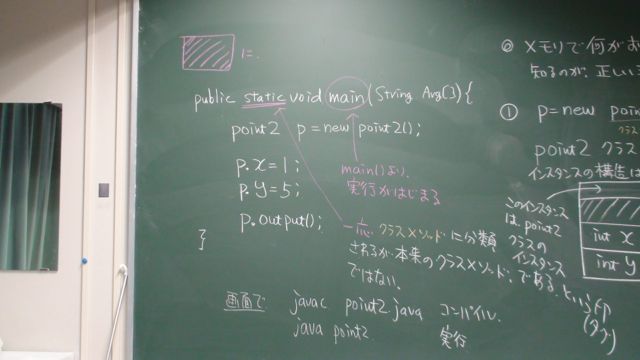 に.
public static void main(String Arg[]){
point2 p=new point2();
p.x=1;
p.y=5;
p.output();
}
main()より、
実行がはじまる
一応、クラスメソッドに分類
されるが本来のクラスメソッド
ではない.
画面で javac point2.java コンパイル.
java point2 実行
◎ メモリで何が
知るのが、正しい
① p=new
point2 クラス
インスタンスの構造は
このインスタンス
は point2
クラスの
インスタンス
である、という印
(タグ)
int x
int y